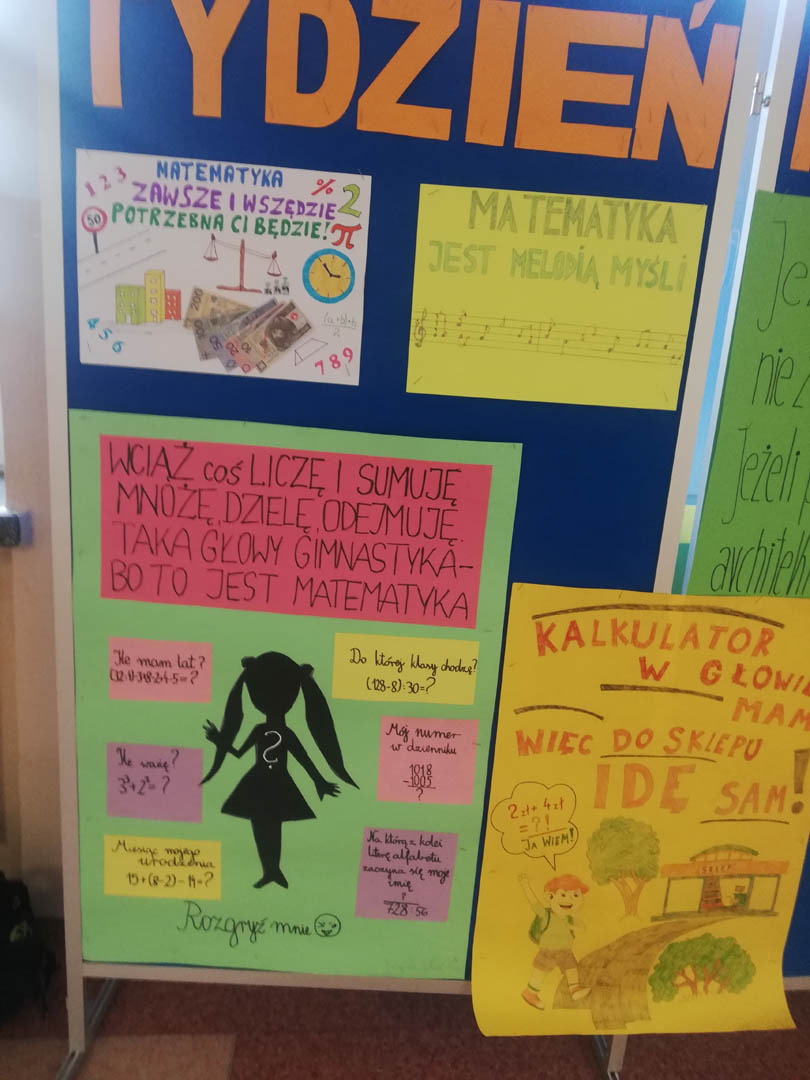 TYDZIEŃ
MATEMATYKA
ZAWSZE I WSZĘDZIE
POTRZEBNA CI BĘDZIE!
1 2 3
%
2
π
50
4 5 6
7 8 9
MATEMATYKA
JEST MELODIĄ MYŚLI
WCIĄŻ coś LICZĘ I SUMUJĘ
MNOŻĘ, DZIELĘ, ODEJMUJĘ.
TAKA GŁOWY GIMNASTYKA-
BO TO JEST MATEMATYKA
Ile mam lat?
Do której klasy chodzę?
(128-8):30=?
Ile ważę?
3³+2²=?
?
Mój numer
w dzienniku
1018
-1005
?
Miesiąc mojego
urodzenia
15+(8-2)-14=?
Na którą z kolei
literę alfabetu
zaczyna się moje
imię
?
728:56
Rozgryź mnie
Je
nie
Jeżeli
architek
KALKULATOR
W GŁOWIE
MAM
WIĘC DO SKLEPU
IDĘ SAM!
2zł+4zł
=?!
JA WIEM!
SKLEP